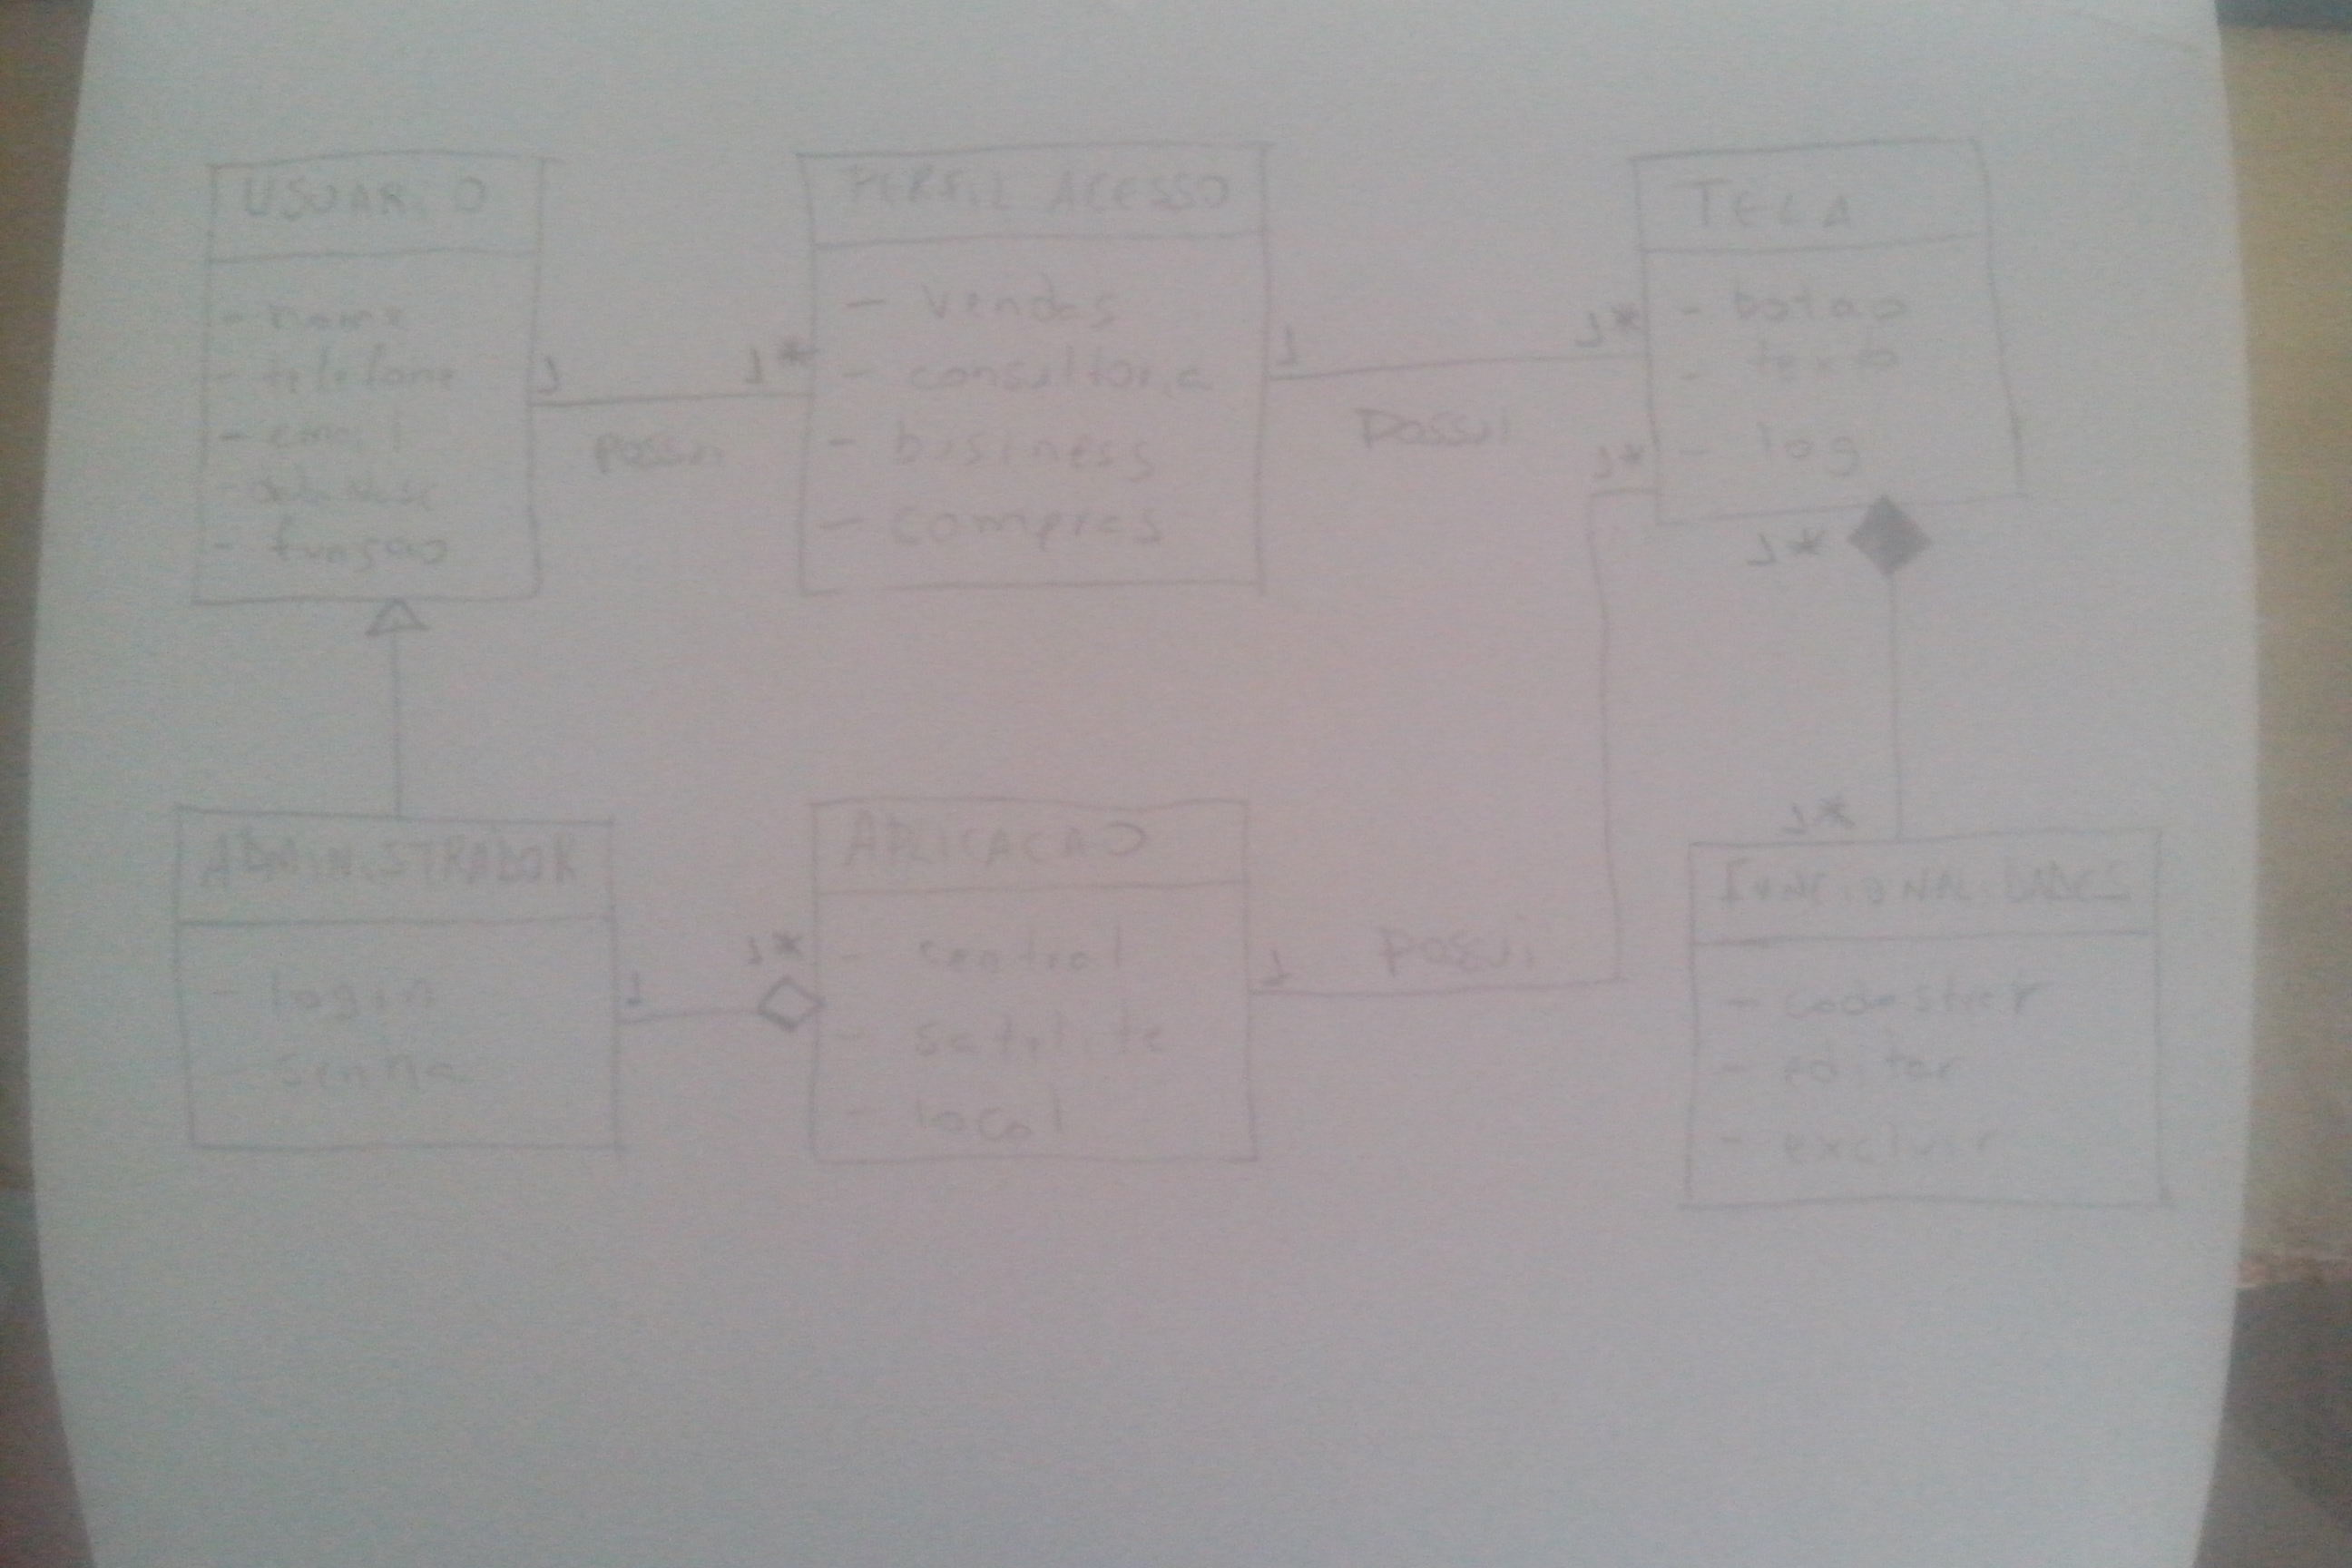 USUARIO
- nome
- telefone
- email
-
- funsao
1
possui
1*
PERFIL ACESSO
- vendas
- consultoria
- bisiness
- compras
1
possui
1*
TELA
- botao
- texto
- log
1*
1*
ADMINISTRADOR
- login
- senha
1
1*
APLICACAO
- central
- satelite
- local
1
possui
1*
FUNCIONALIDADES
- cadastrar
- editar
- excluir